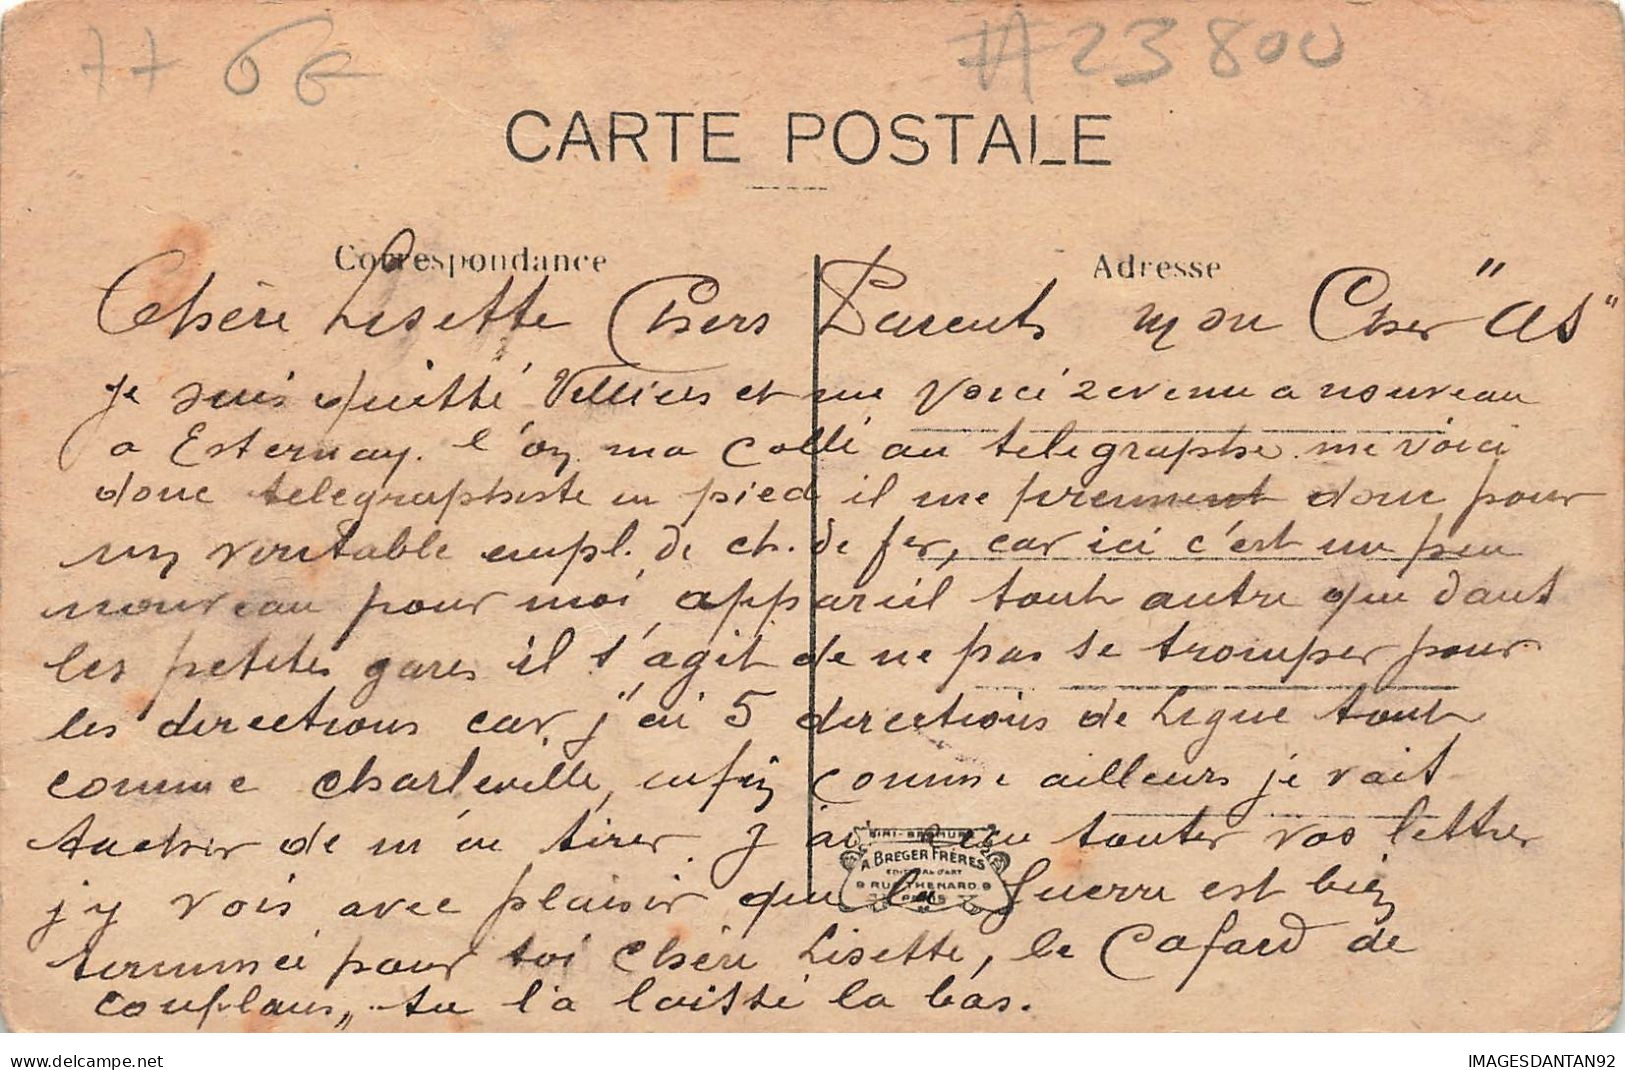 77 6€ #23800
CARTE POSTALE
Correspondance Adresse
Chère Lisette Chers Parents mon Cher "As"
Je suis quitté Villiers et me voici revenu a nouveau
a Esternay. l'on ma collé au telegraphe me voici
donc telegraphiste en pied il me prennent donc pour
un veritable empl. de ch. de fer, car ici c'est un peu
nouveau pour moi, appareil tout autre que dant
les petites gares il s'agit de ne pas se tromper pour
les directions car j'ai 5 directions de Ligne tout
comme Charleville, enfin comme ailleurs je vait
tacher de m'en tirer. J'ai reçu toutes vos lettres
A. BREGER FRÈRES
9 RUE THENARD 9
PARIS
j'y vois avec plaisir que la Guerre est bien
terminée pour toi Chère Lisette, le Cafard de
Conflans,, tu l'a laissé la bas.
www.delcampe.net IMAGESDANTAN92